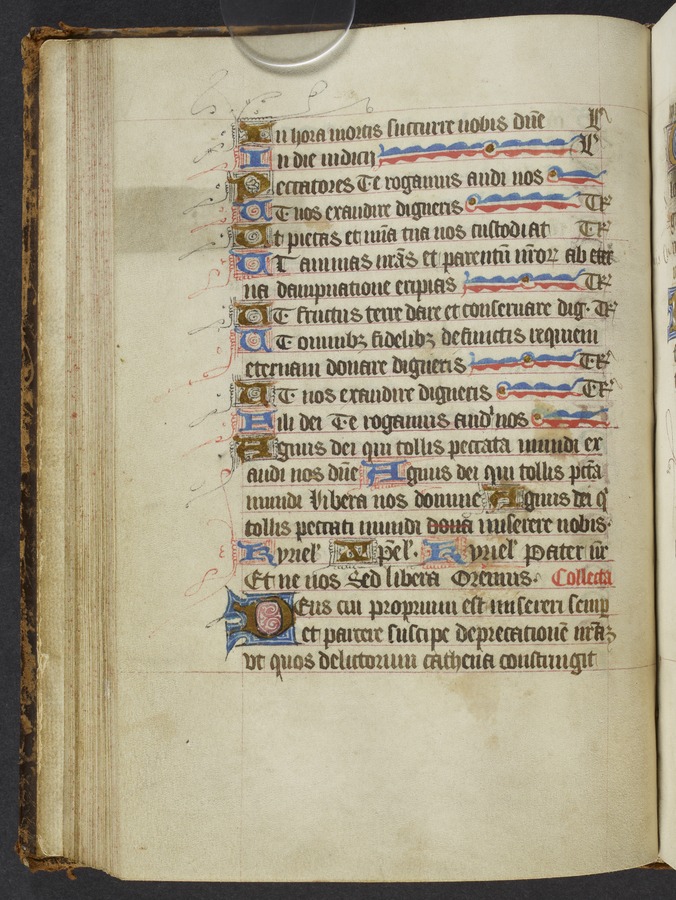 In hora mortis succurre nobis dn̄e L
In die iudicij L
Peccatores Te rogamus audi nos
UT nos exaudire digneris TR
Ut pietas et mīa tua nos custodiat TR
UT animas nr̄as et parentū nr̄orꝝ ab eter
na dampnatione eripias TR
UT fructus terre dare et conseruare dig. TR
UT omnibꝫ fidelibꝫ defunctis requiem
eternam donare digneris TR
UT nos exaudire digneris TR
Fili dei Te rogamus aud' nos
Agnus dei qui tollis peccata mundi ex
audi nos dn̄e Agnus dei qui tollis pctā
mundi Libera nos domine Agnus dei q'
tollis peccati mundi dona miserere nobis.
Kyriel' Xp̄el'. Kyriel' pater nr̄
Et ne nos Sed libera Oremus. Collecta
DEus cui proprium est misereri semp
et parcere suscipe deprecationē nr̄aꝫ
vt quos delictorum cathena constringit